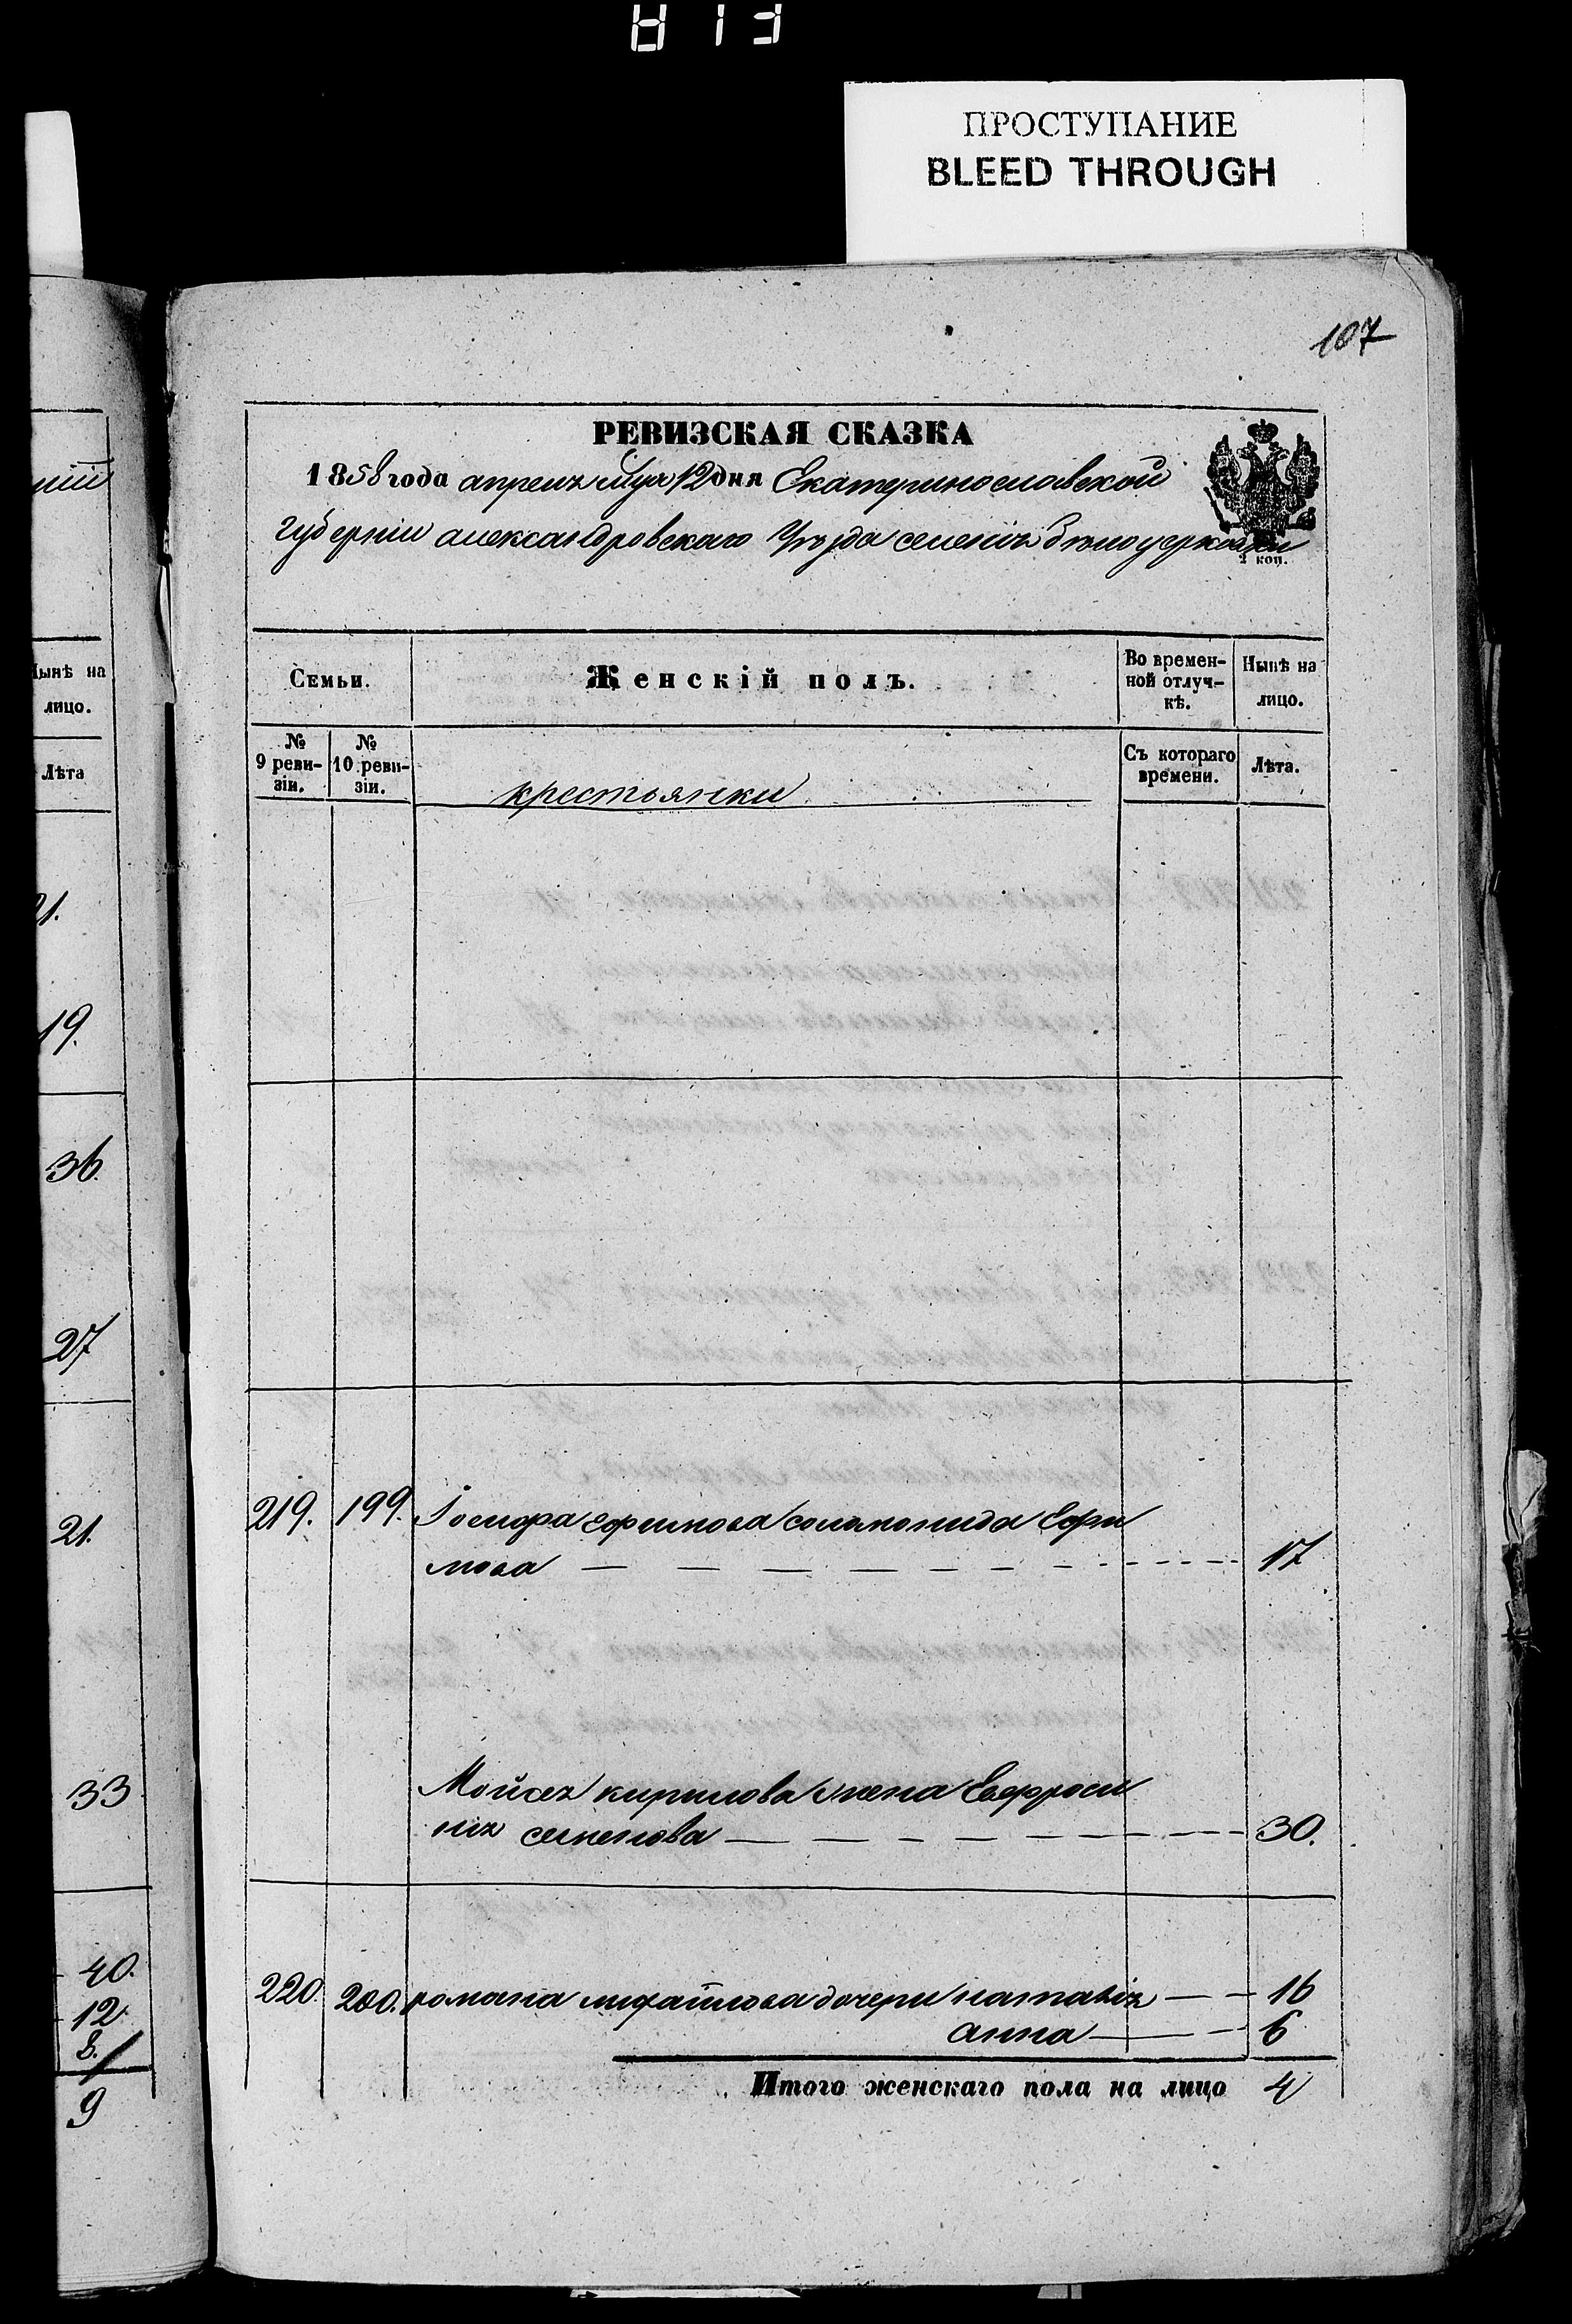 813
ПРОСТУПАНИЕ
BLEED THROUGH
107
РЕВИЗСКАЯ СКАЗКА
1858 года апреля мца 12 дня Екатеринославской
губерніи александровскаго Уѣзда селенія бѣлоцерковки
2 коп.
Семьи.
Женскій полъ.
Во времен-
ной отлуч-
кѣ.
Нынѣ на
лицо.
№
9 реви-
зіи.
№
10 реви-
зіи.
крестьянки
Съ котораго
времени.
Лѣта.
219. 199. Іосифа ефимова соломонида Ефи
мова 17
Мойсея кирилова жена Евфроси
нія семенова 30.
220. 200. романа михайлова дочери наталія 16
анна 6
Итого женскаго пола на лицо 4
Нынѣ на
лицо.
Лѣта
21.
19.
36.
27
21.
33
40.
12
8.
9